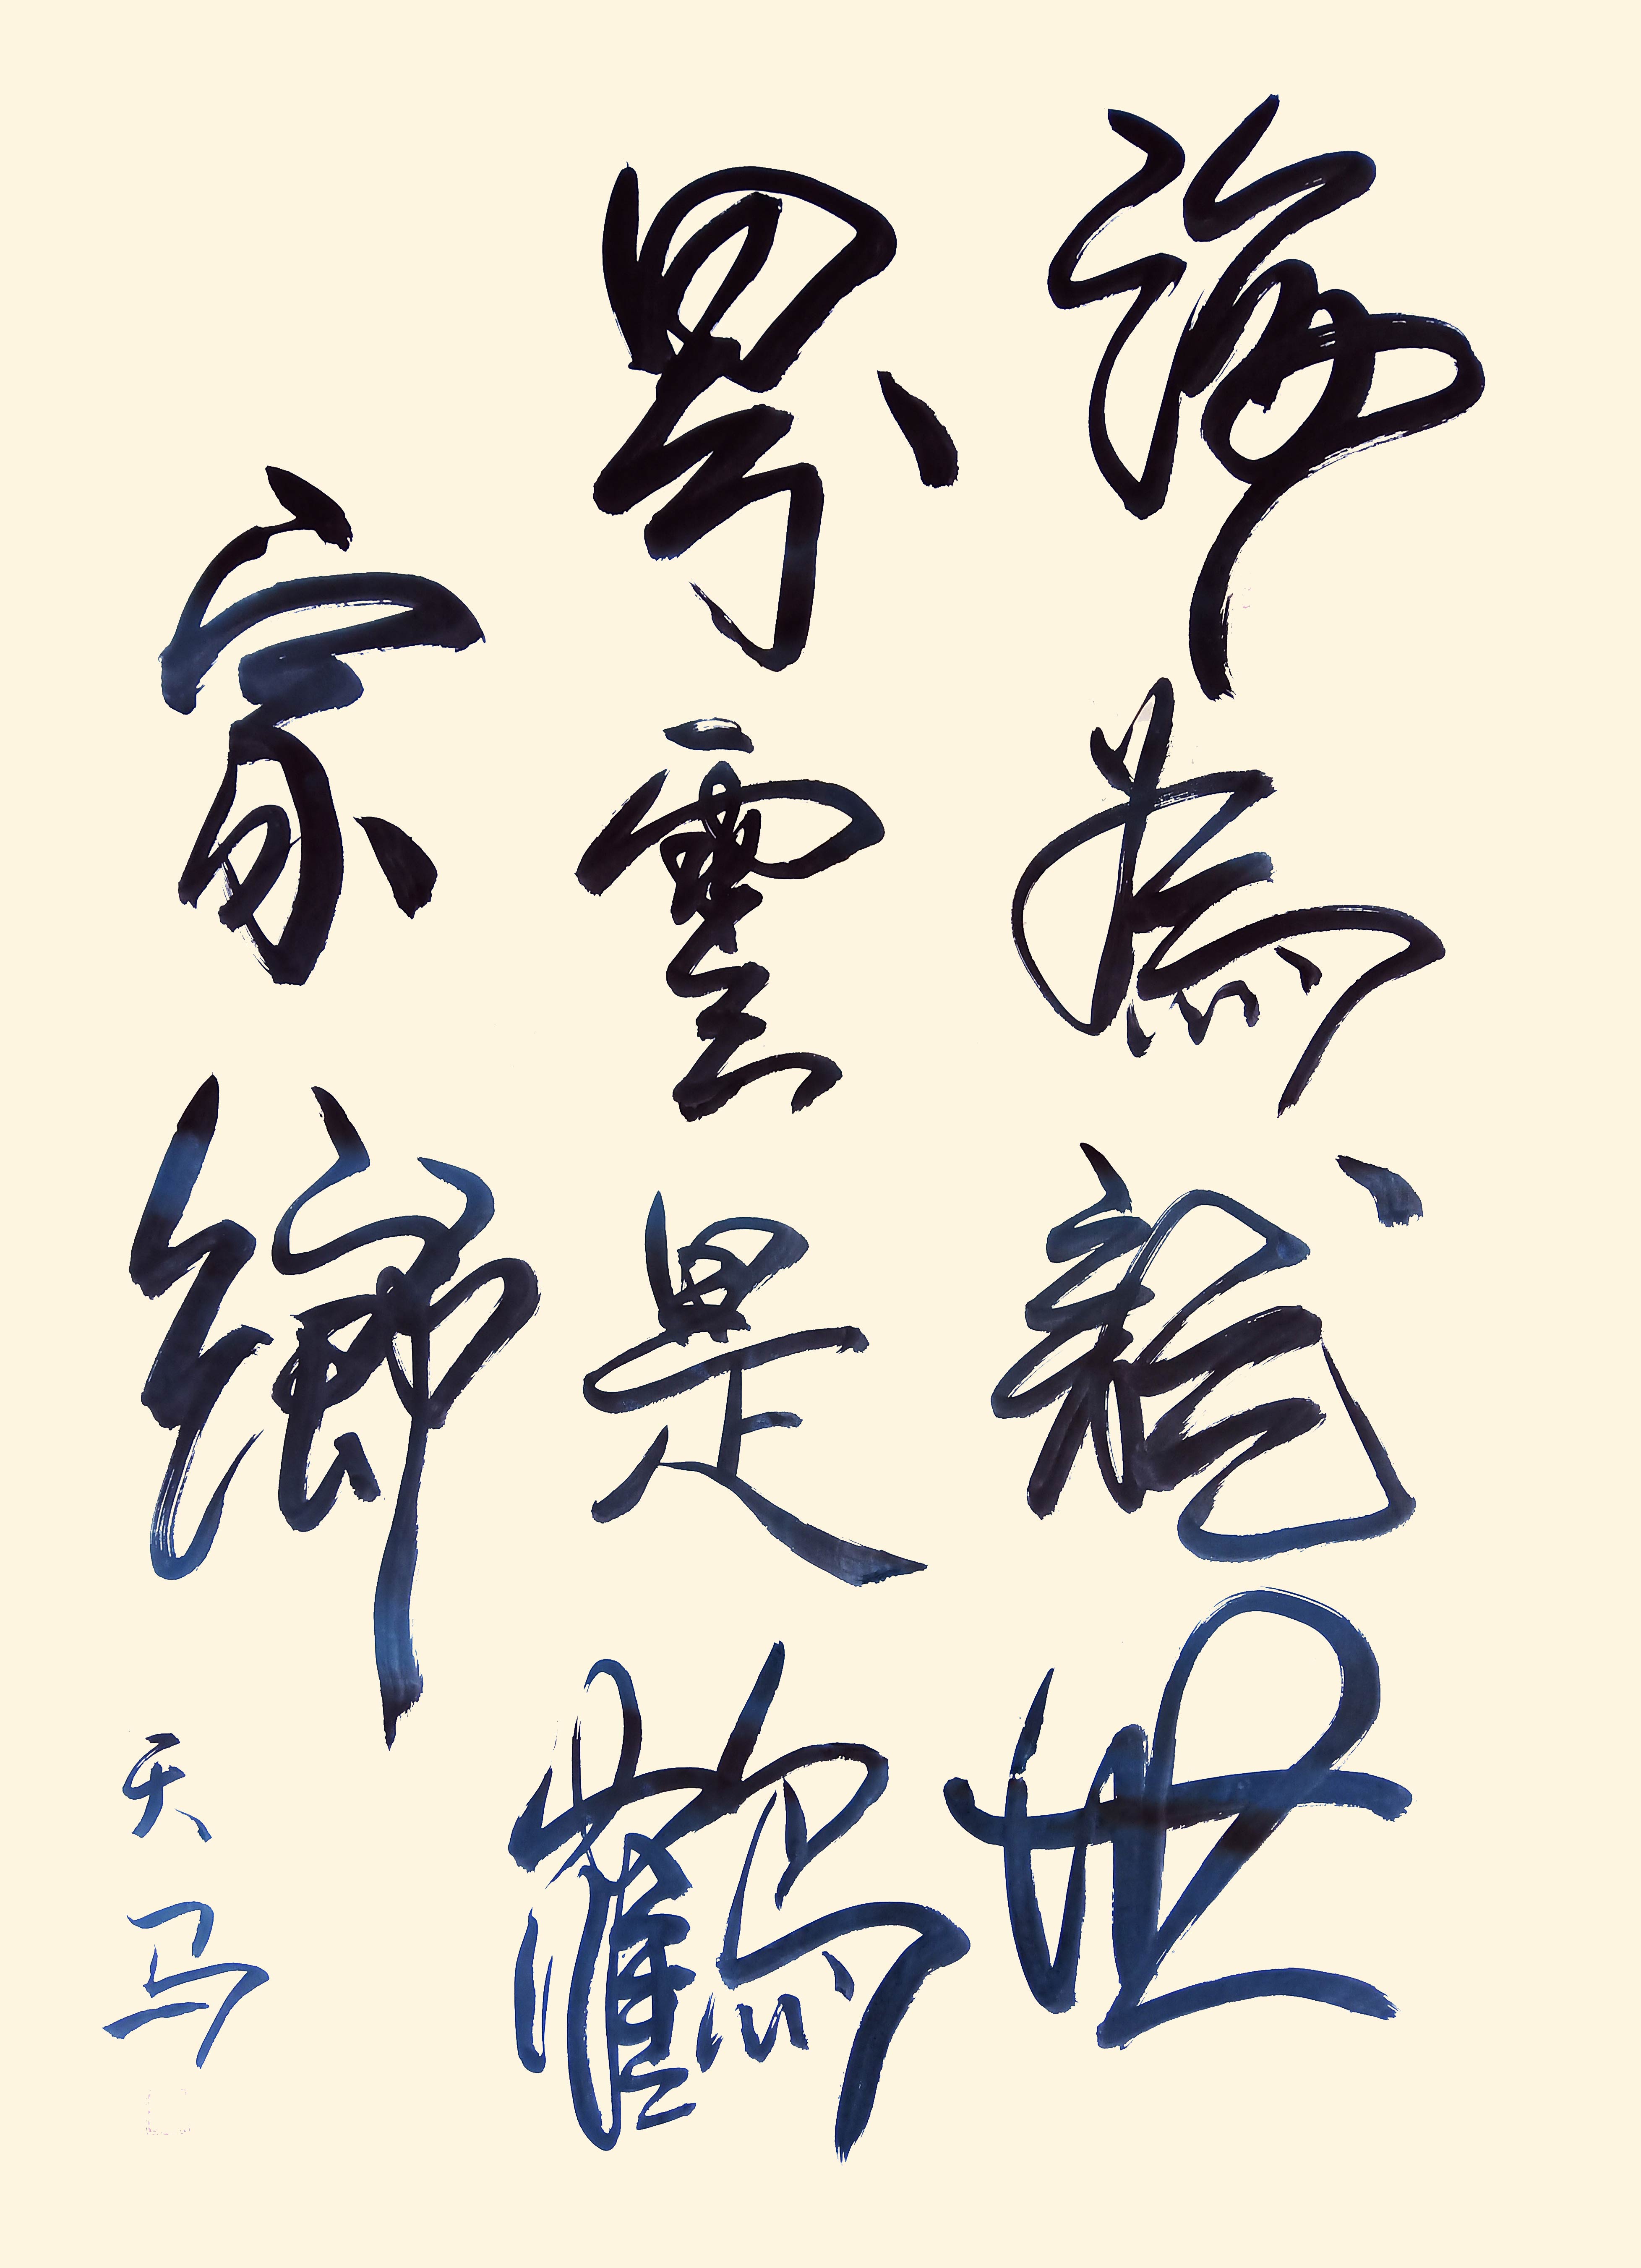 海為龍世
界雲是鶴
家鄉
天马